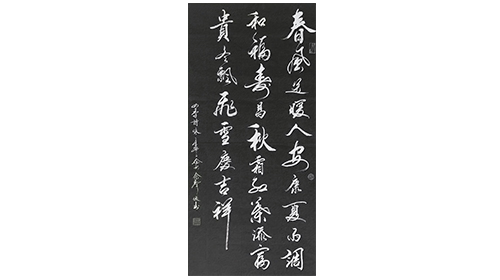 春風送暖人安康夏雨調
和福壽昌秋霜紅葉添富
貴冬飄飛雪慶吉祥
四季詩